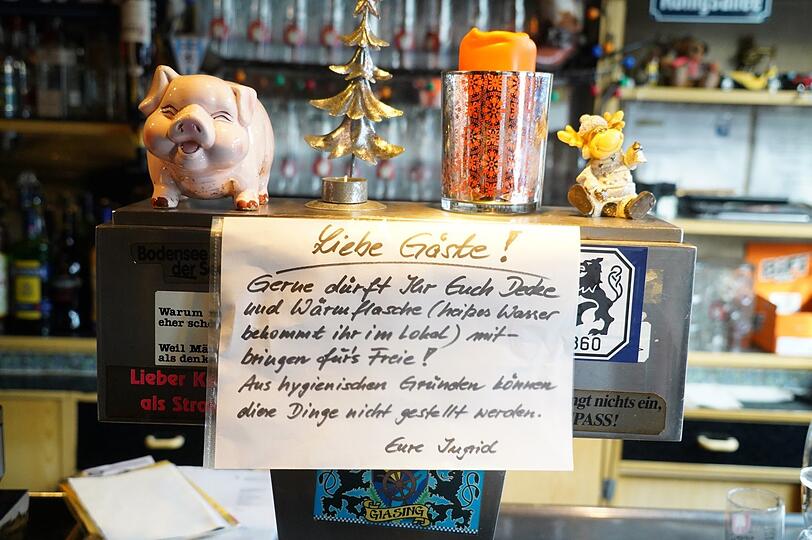 Königsallee
Liebe Gäste!
Gerne dürft Ihr Euch Decke
und Wärmflasche (heißes Wasser
bekommt ihr im Lokal) mit-
bringen für's Freie!
Aus hygienischen Gründen können
diese Dinge nicht gestellt werden.
Eure Ingrid
Bodensee
der Se
Warum
eher sch
Weil Mä
als denk
Lieber K
als Stra
860
ngt nichts ein,
PASS!
GIASING